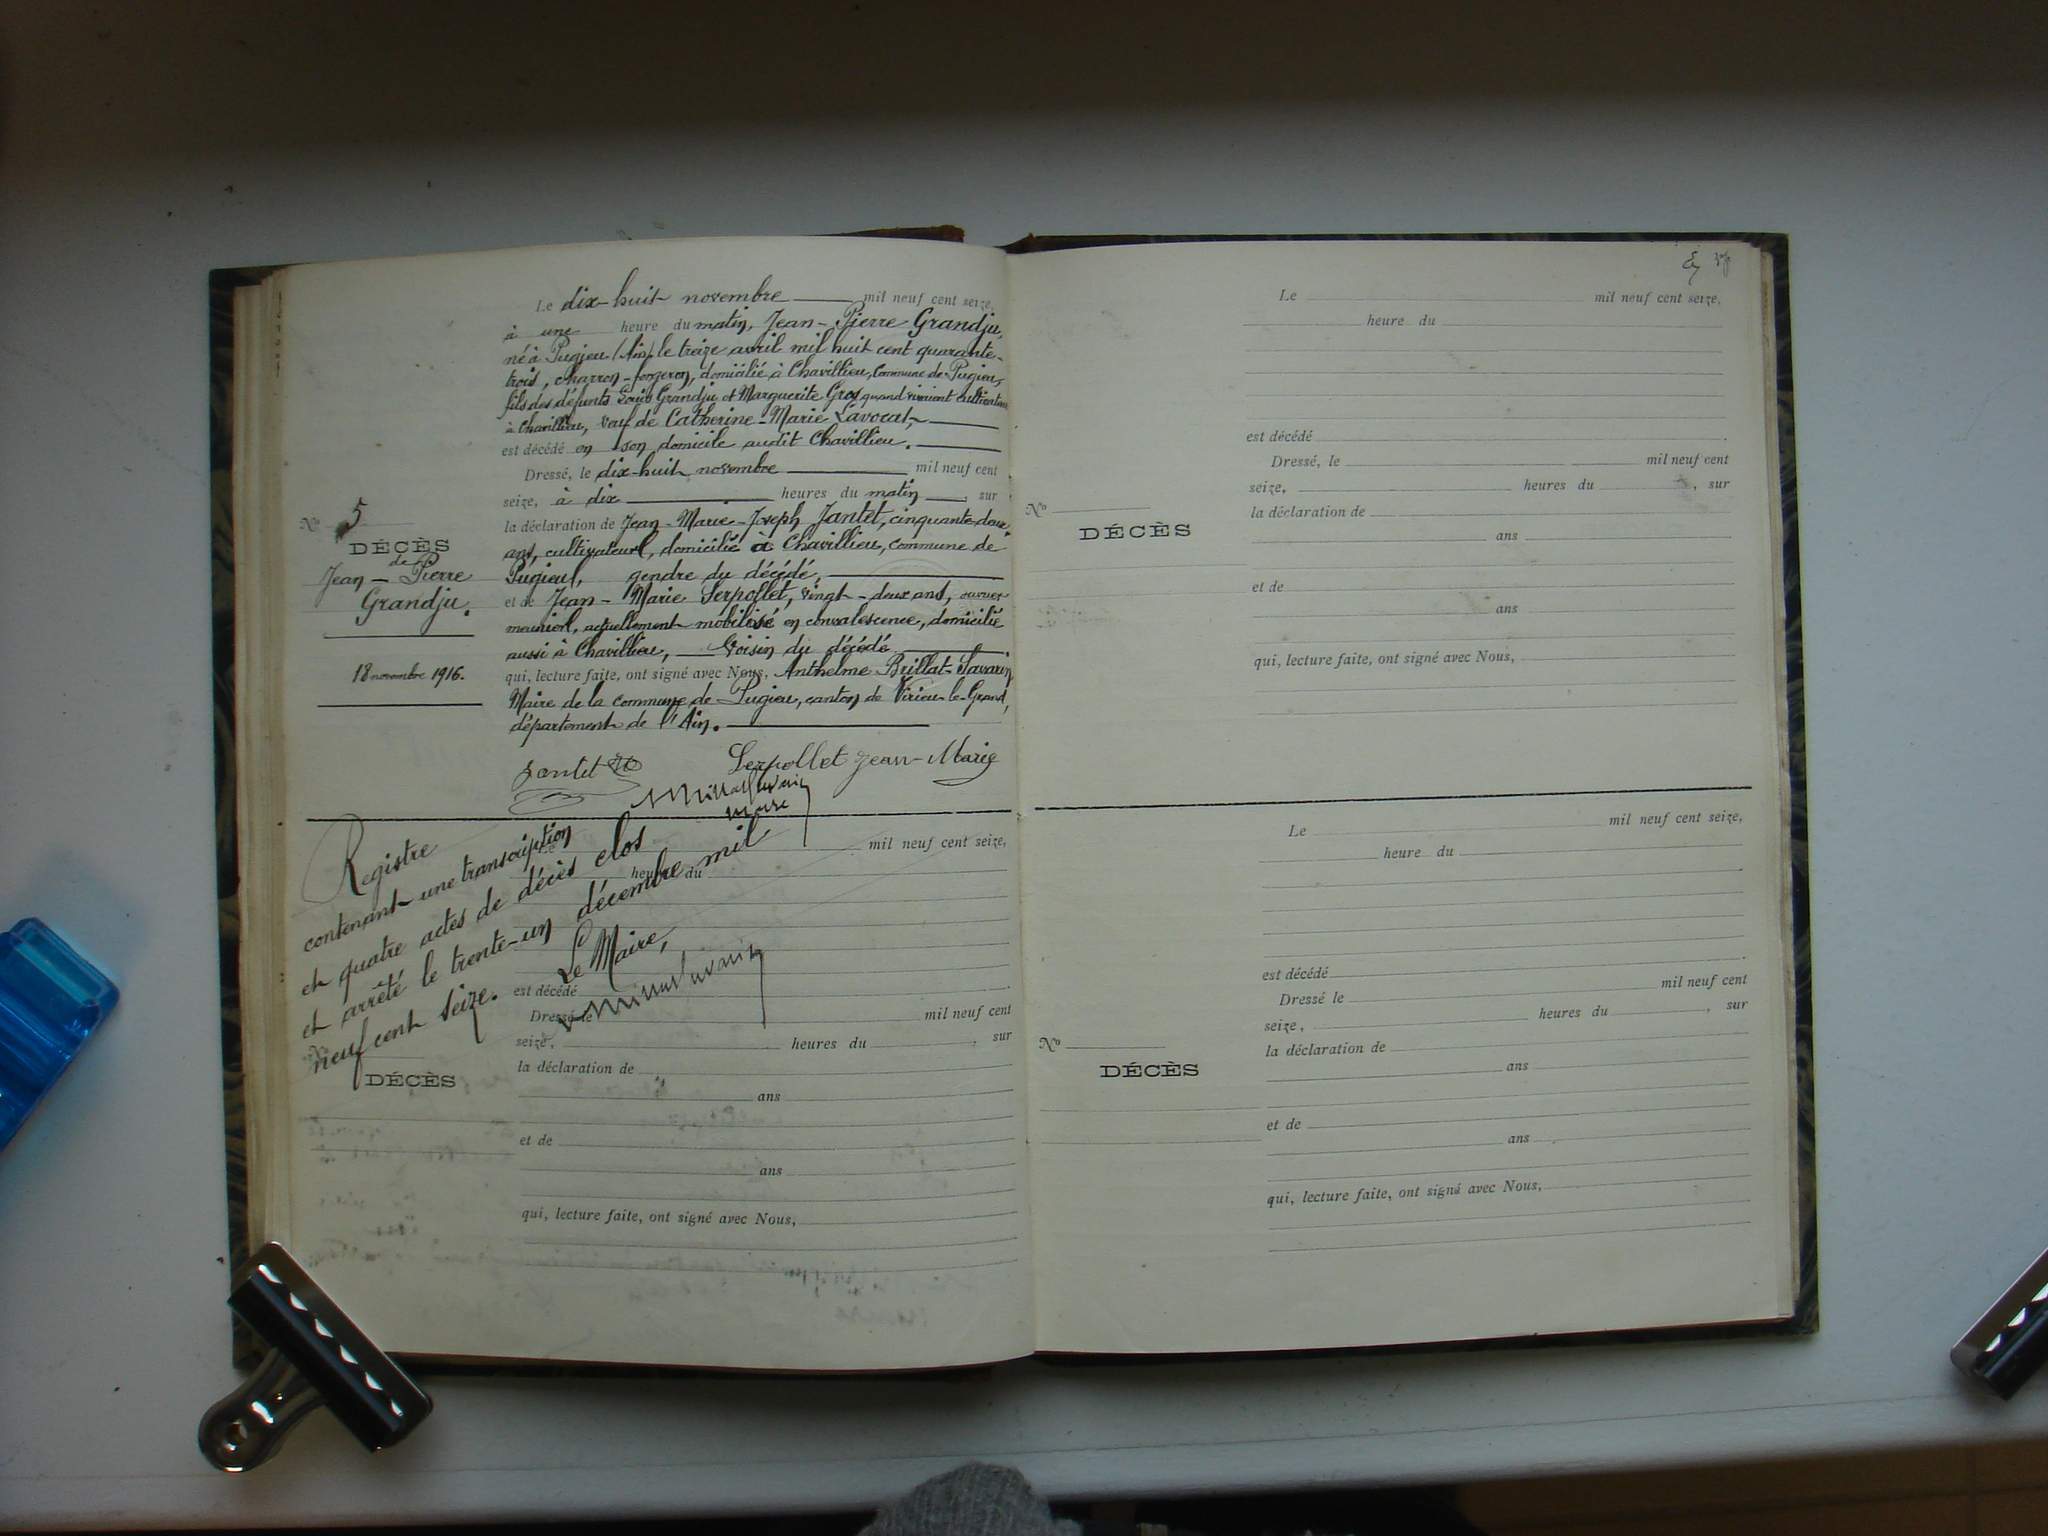 Le dix-huit novembre mil neuf cent seize,
à une heure du matin, Jean-Pierre Grandju,
né à Pugieu (Ain) le treize avril mil huit cent quarante-
trois, charron-forgeron, domicilié à Chavillieu, commune de Pugieu,
fils des défunts Louis Grandju et Marguerite Gros, quand vivaient cultivateurs
à Chavillieu, veuf de Catherine-Marie Lavocat,
est décédé en son domicile audit Chavillieu.
Dressé, le dix-huit novembre mil neuf cent
seize, à dix heures du matin, sur
la déclaration de Jean-Marie-Joseph Jantet, cinquante-deux
ans, cultivateur, domicilié à Chavillieu, commune de
Pugieu, gendre du décédé,
et de Jean-Marie Serpollet, vingt-deux ans, ouvrier
meunier, actuellement mobilisé en convalescence, domicilié
aussi à Chavillieu, voisin du décédé
qui, lecture faite, ont signé avec Nous, Anthelme Brillat-Savarin
Maire de la commune de Pugieu, canton de Virieu-le-Grand,
département de l'Ain.
Jantet Serpollet Jean-Marie
Maire
No 5
DÉCÈS
de
Jean-Pierre
Grandju.
18 novembre 1916.
Registre
contenant une transcription
et quatre actes de décès clos
et arrêté le trente-un décembre mil
neuf cent seize.
Le Maire,
Le mil neuf cent seize,
heure du
est décédé
Dressé le mil neuf cent
seize, heures du , sur
la déclaration de
ans
et de
ans
qui, lecture faite, ont signé avec Nous,
No
DÉCÈS
Le mil neuf cent seize,
heure du
est décédé
Dressé, le mil neuf cent
seize, heures du , sur
la déclaration de
ans
et de
ans
qui, lecture faite, ont signé avec Nous,
No
DÉCÈS
Le mil neuf cent seize,
heure du
est décédé
Dressé le mil neuf cent
seize, heures du , sur
la déclaration de
ans
et de
ans
qui, lecture faite, ont signé avec Nous,
No
DÉCÈS